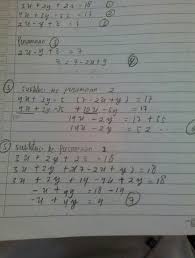 3x + 2y + 2z = 18 ①
4x + 2y - 5z = 17 ②
2x - y + z = 7 ③
Persamaan ③
2x - y + z = 7
z = 7 - 2x + y ④
⑤ Subtitusi ke persamaan 2
4x + 2y - 5 (7 - 2x + y) = 17
4x + 2y - 35 + 10x - 5y = 17
= 17 + 35
= 52
⑥ Subtitusi ke persamaan 1
3x + 2y + 2z = 18
3x + 2y + 2(7 - 2x + y) = 18
3x + 2y + 14 - 4x + 2y = 18
-x + 4y = 18 - 14
-x + 4y = 4 ⑦